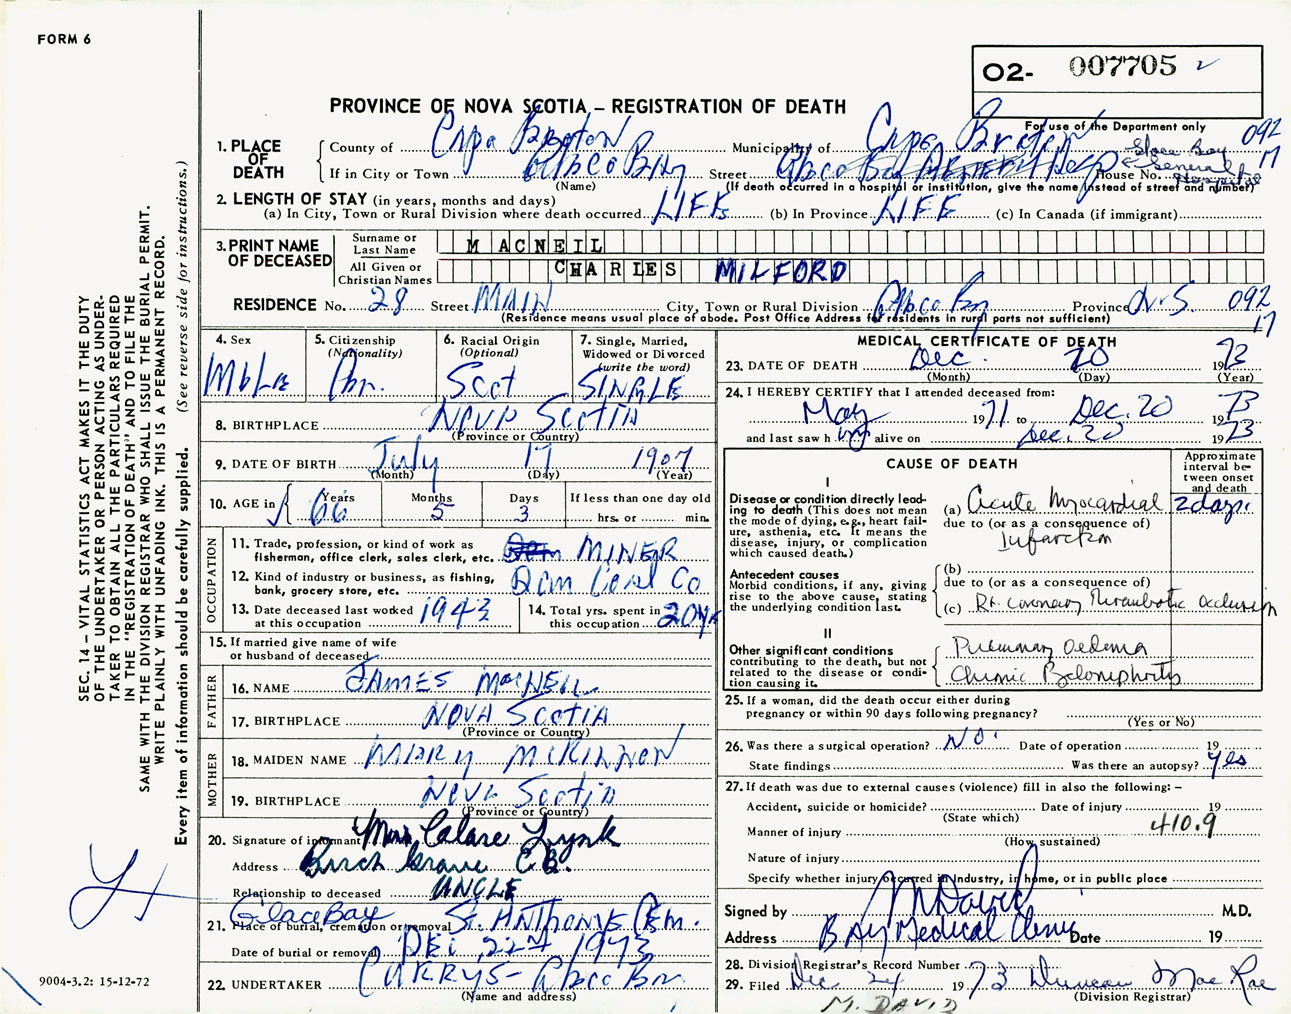 FORM 6
O2- 007705
PROVINCE OF NOVA SCOTIA – REGISTRATION OF DEATH
For use of the Department only
092
17
1. PLACE OF DEATH
County of Cape Breton Municipality of Cape Breton
If in City or Town Glace Bay Street Glace Bay General Hosp House No.
Glace Bay General Hospital
(Name) (If death occurred in a hospital or institution, give the name instead of street and number)
2. LENGTH OF STAY (in years, months and days)
(a) In City, Town or Rural Division where death occurred LIFE (b) In Province LIFE (c) In Canada (if immigrant)
3. PRINT NAME OF DECEASED
Surname or Last Name MACNEIL
All Given or Christian Names CHARLES MILFORD
RESIDENCE No. 28 Street MAIN City, Town or Rural Division Glace Bay Province N.S. 092
17
(Residence means usual place of abode. Post Office Address for residents in rural parts not sufficient)
4. Sex
Male
5. Citizenship
(Nationality)
Can.
6. Racial Origin
(Optional)
Scot
7. Single, Married,
Widowed or Divorced
(write the word)
SINGLE
8. BIRTHPLACE Nova Scotia
(Province or Country)
9. DATE OF BIRTH July 17 1907
(Month) (Day) (Year)
10. AGE in Years 66 Months 5 Days 3 If less than one day old
hrs. or min.
OCCUPATION
11. Trade, profession, or kind of work as
fisherman, office clerk, sales clerk, etc. MINER
12. Kind of industry or business, as fishing,
bank, grocery store, etc. Dom Coal Co
13. Date deceased last worked
at this occupation 1943
14. Total yrs. spent in
this occupation 20 yrs
15. If married give name of wife
or husband of deceased
FATHER
16. NAME JAMES MacNEIL
17. BIRTHPLACE NOVA SCOTIA
(Province or Country)
MOTHER
18. MAIDEN NAME MARY McKINNON
19. BIRTHPLACE Nova Scotia
(Province or Country)
20. Signature of informant Lynk
Address Birch Grove C.B.
Relationship to deceased UNCLE
21. Place of burial, cremation or removal Glace Bay St. Anthonys Cem.
Date of burial or removal DEC 22nd 1973
22. UNDERTAKER CURRYS - Glace Bay
(Name and address)
MEDICAL CERTIFICATE OF DEATH
23. DATE OF DEATH Dec. 20 1973
(Month) (Day) (Year)
24. I HEREBY CERTIFY that I attended deceased from:
May 1971 to Dec. 20 1973
and last saw him alive on Dec. 20 1973
CAUSE OF DEATH
Approximate interval between onset and death
I
Disease or condition directly leading to death (This does not mean the mode of dying, e.g., heart failure, asthenia, etc. It means the disease, injury, or complication which caused death.)
(a) Acute Myocardial 2 days.
due to (or as a consequence of)
Infarction
Antecedent causes
Morbid conditions, if any, giving rise to the above cause, stating the underlying condition last.
(b)
due to (or as a consequence of)
(c) Rt. coronary thrombotic occlusion
II
Other significant conditions
contributing to the death, but not related to the disease or condition causing it.
Pulmonary oedema
Chronic Pyelonephritis
25. If a woman, did the death occur either during
pregnancy or within 90 days following pregnancy?
(Yes or No)
26. Was there a surgical operation? NO. Date of operation 19
State findings Was there an autopsy? Yes
27. If death was due to external causes (violence) fill in also the following: –
Accident, suicide or homicide? Date of injury 19
(State which)
410.9
Manner of injury
(How sustained)
Nature of injury
Specify whether injury occurred in Industry, in home, or in public place
Signed by M David M.D.
Address Bay Medical Clinic Date 19
28. Division Registrar's Record Number
29. Filed Dec 24 1973 Duncan MacRae
(Division Registrar)
M. DAVID
SEC. 14 – VITAL STATISTICS ACT MAKES IT THE DUTY
OF THE UNDERTAKER OR PERSON ACTING AS UNDER-
TAKER TO OBTAIN ALL THE PARTICULARS REQUIRED
IN THE "REGISTRATION OF DEATH" AND TO FILE THE
SAME WITH THE DIVISION REGISTRAR WHO SHALL ISSUE THE BURIAL PERMIT.
WRITE PLAINLY WITH UNFADING INK. THIS IS A PERMANENT RECORD.
Every item of information should be carefully supplied. (See reverse side for instructions.)
9004-3.2: 15-12-72